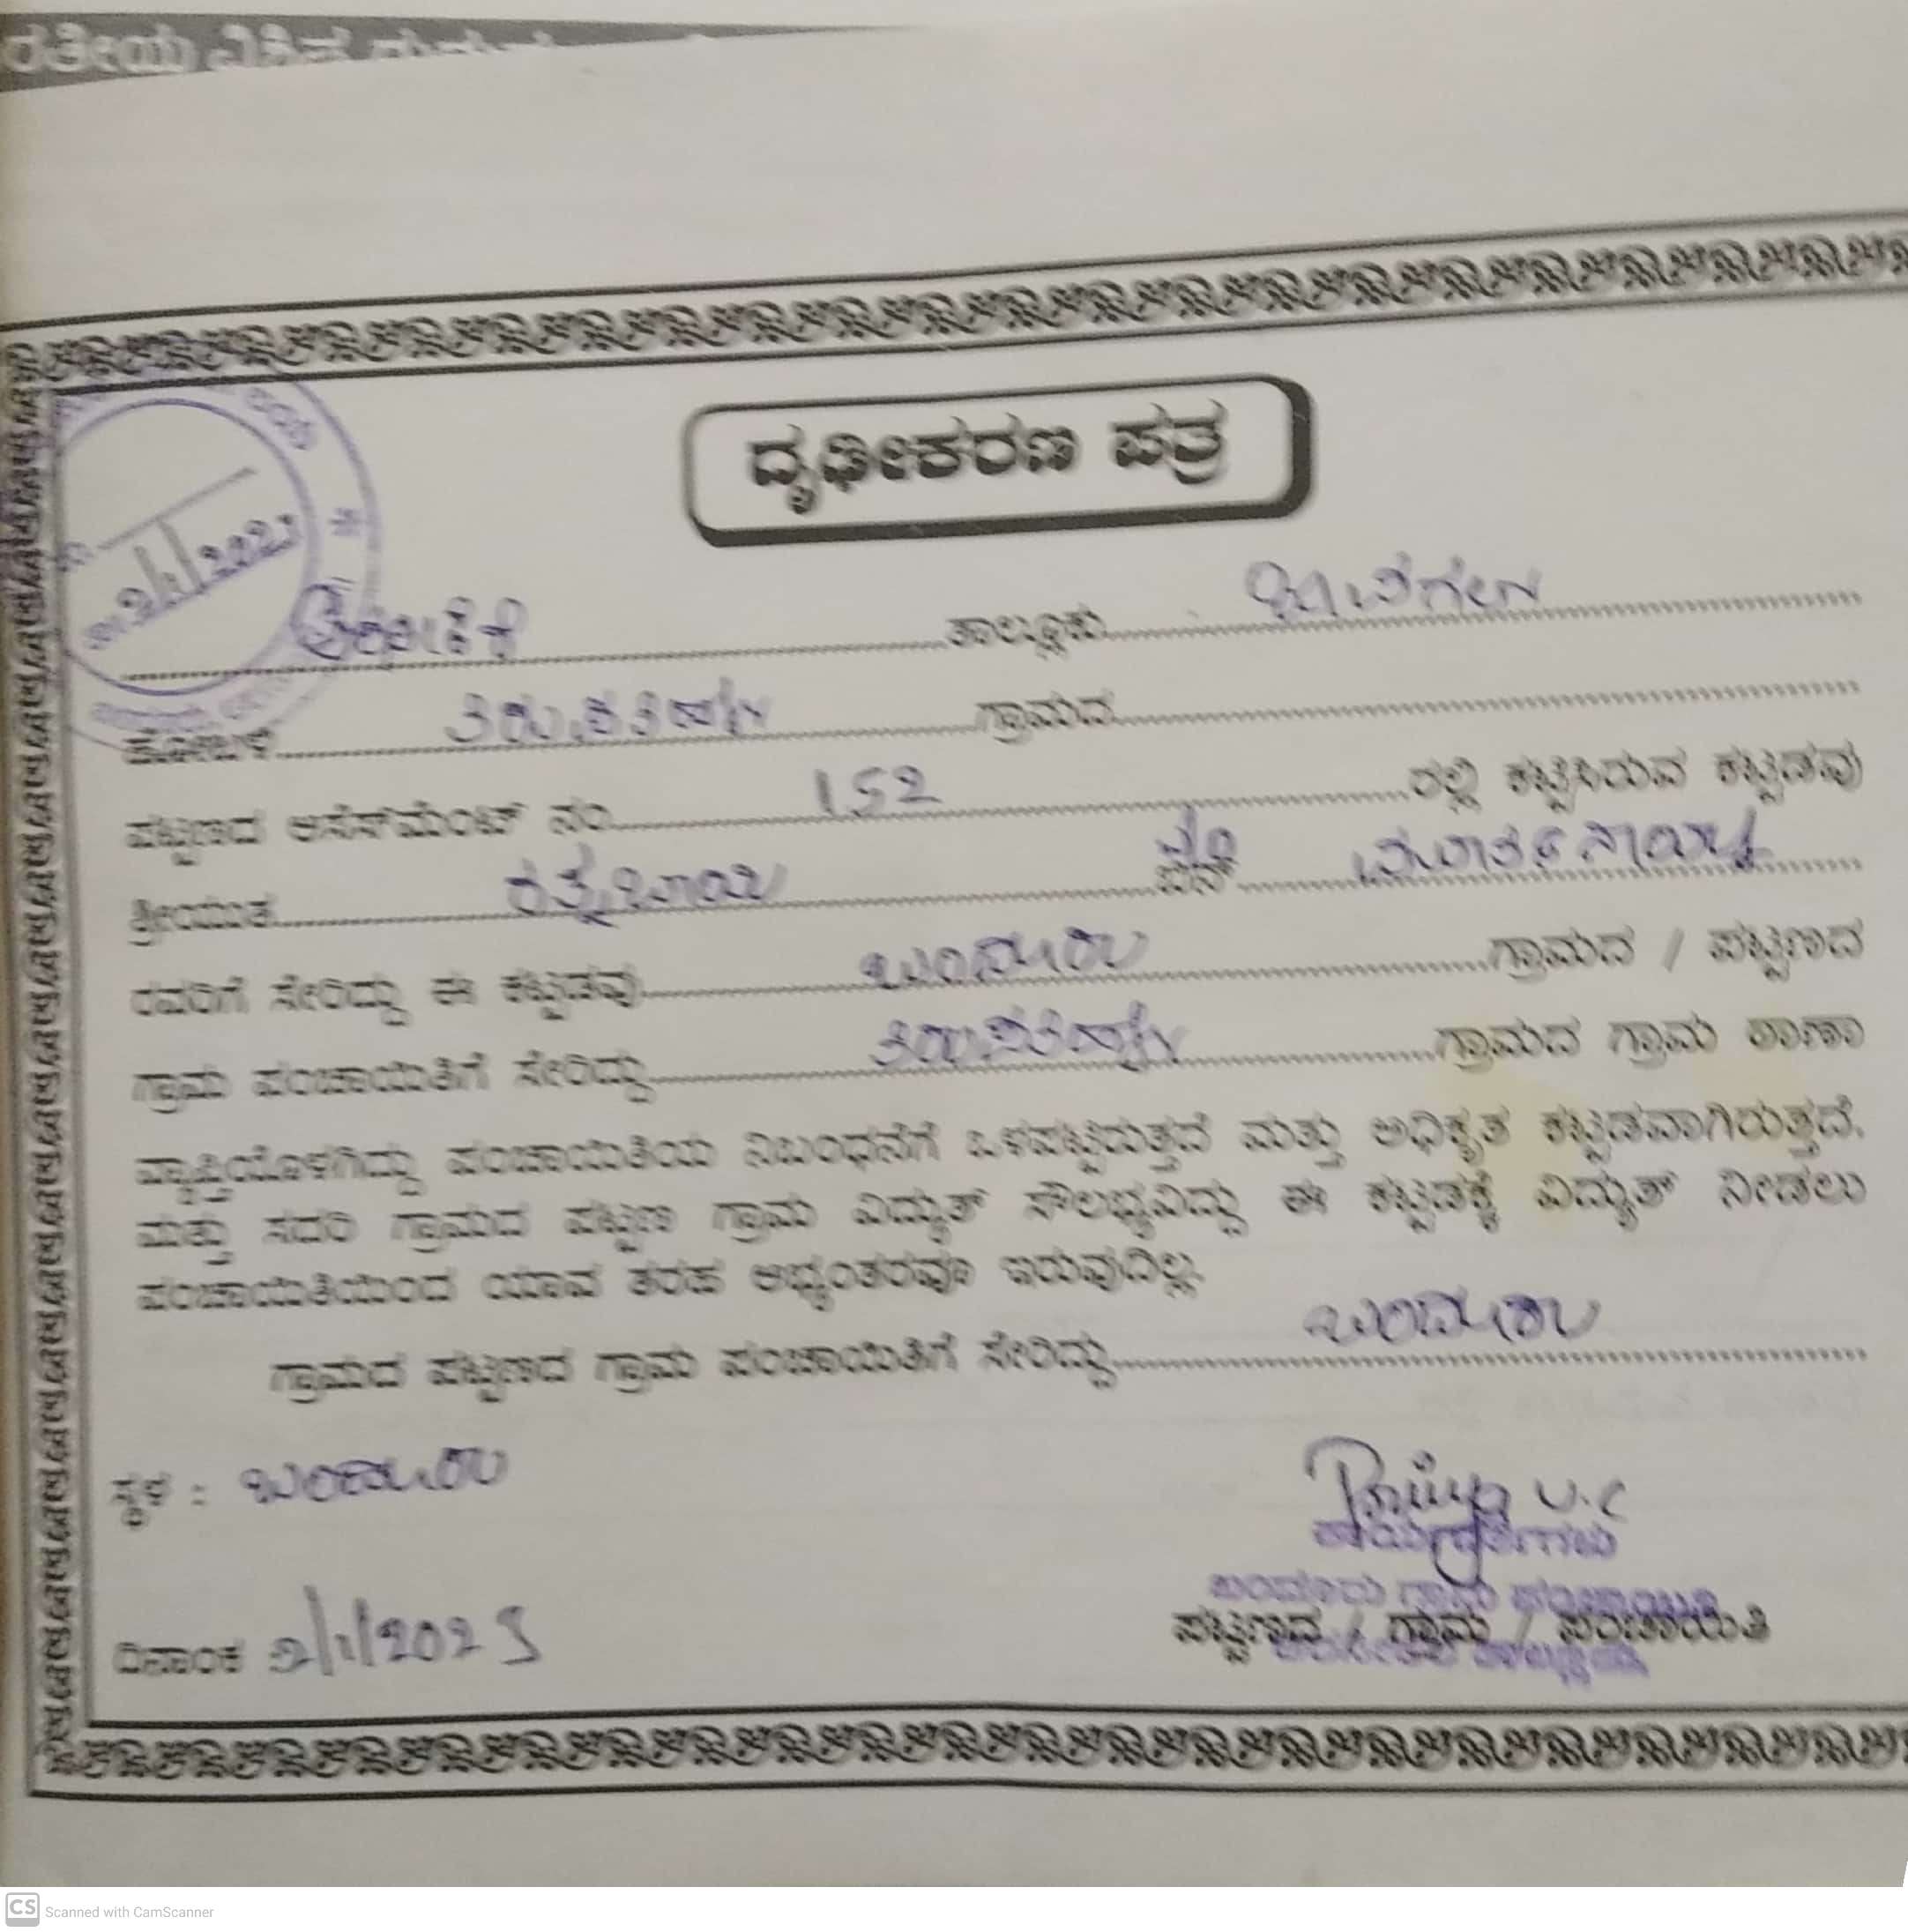 ದೃಢೀಕರಣ ಪತ್ರ
2/1/2023
ಅರಸೀಕೆರೆ ತಾಲ್ಲೂಕು ಜಾವಗಲ್
ಹೋಬಳಿ ತಿರುಪತಿಹಳ್ಳಿ ಗ್ರಾಮದ
ಪಟ್ಟಣದ ಅಸೆಸ್‌ಮೆಂಟ್ ನಂ 152 ರಲ್ಲಿ ಕಟ್ಟಿಸಿರುವ ಕಟ್ಟಡವು
ಶ್ರೀಯುತ ರತ್ನಬಾಯಿ ಬಿನ್
ರವರಿಗೆ ಸೇರಿದ್ದು ಈ ಕಟ್ಟಡವು ಬಂದೂರು ಗ್ರಾಮದ / ಪಟ್ಟಣದ
ಗ್ರಾಮ ಪಂಚಾಯಿತಿಗೆ ಸೇರಿದ್ದು ತಿರುಪತಿಹಳ್ಳಿ ಗ್ರಾಮದ ಗ್ರಾಮ ಠಾಣಾ
ವ್ಯಾಪ್ತಿಯೊಳಗಿದ್ದು ಪಂಚಾಯಿತಿಯ ನಿಬಂಧನೆಗೆ ಒಳಪಟ್ಟಿರುತ್ತದೆ ಮತ್ತು ಅಧಿಕೃತ ಕಟ್ಟಡವಾಗಿರುತ್ತದೆ.
ಮತ್ತು ಸದರಿ ಗ್ರಾಮದ ಪಟ್ಟಣ ಗ್ರಾಮ ವಿದ್ಯುತ್ ಸೌಲಭ್ಯವಿದ್ದು ಈ ಕಟ್ಟಡಕ್ಕೆ ವಿದ್ಯುತ್ ನೀಡಲು
ಪಂಚಾಯಿತಿಯಿಂದ ಯಾವ ತರಹ ಅಭ್ಯಂತರವೂ ಇರುವುದಿಲ್ಲ.
ಗ್ರಾಮದ ಪಟ್ಟಣದ ಗ್ರಾಮ ಪಂಚಾಯಿತಿಗೆ ಸೇರಿದ್ದು ಬಂದೂರು
ಸ್ಥಳ : ಬಂದೂರು
Priya U.C
ಬಂದೂರು ಗ್ರಾಮ ಪಂಚಾಯಿತಿ
ಪಟ್ಟಣದ / ಗ್ರಾಮ / ಪಂಚಾಯಿತಿ
ದಿನಾಂಕ 2/1/2023
CS Scanned with CamScanner